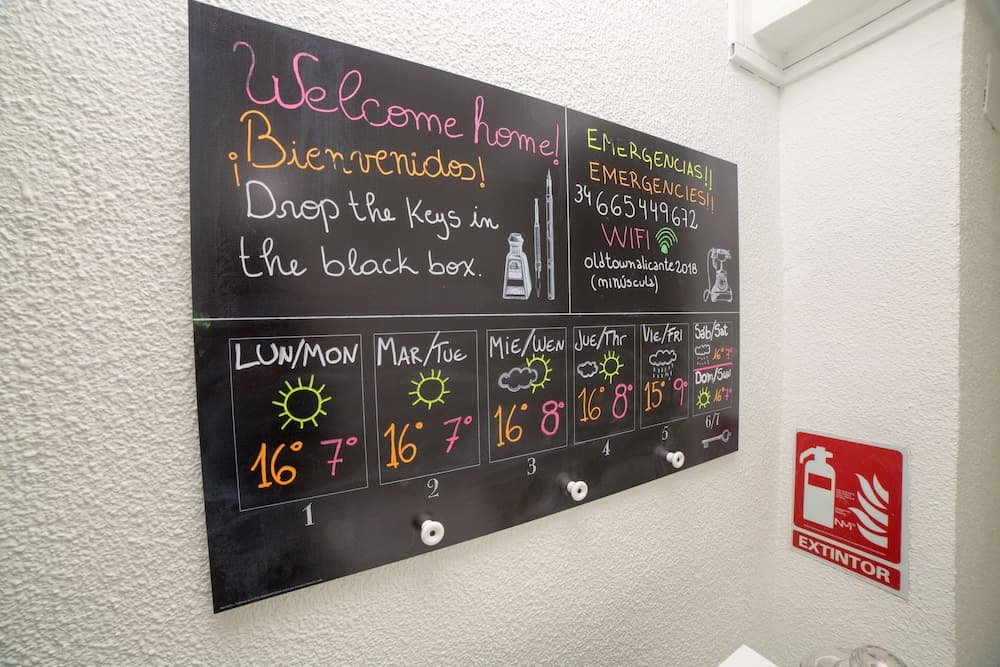 Welcome home!
¡Bienvenidos!
Drop the Keys in
the black box.
EMERGENCIAS!!
EMERGENCIES!!
34 665449672
WIFI
oldtownalicante2018
(minúscula)
LUN/MON
16° 7°
1
MAR/TUE
16° 7°
2
MIE/WEN
16° 8°
3
JUE/Thr
16° 8°
4
VIE/FRI
15° 9°
5
Sáb/Sat
16° 7°
Dom/Sun
16° 7°
6/7
EXTINTOR